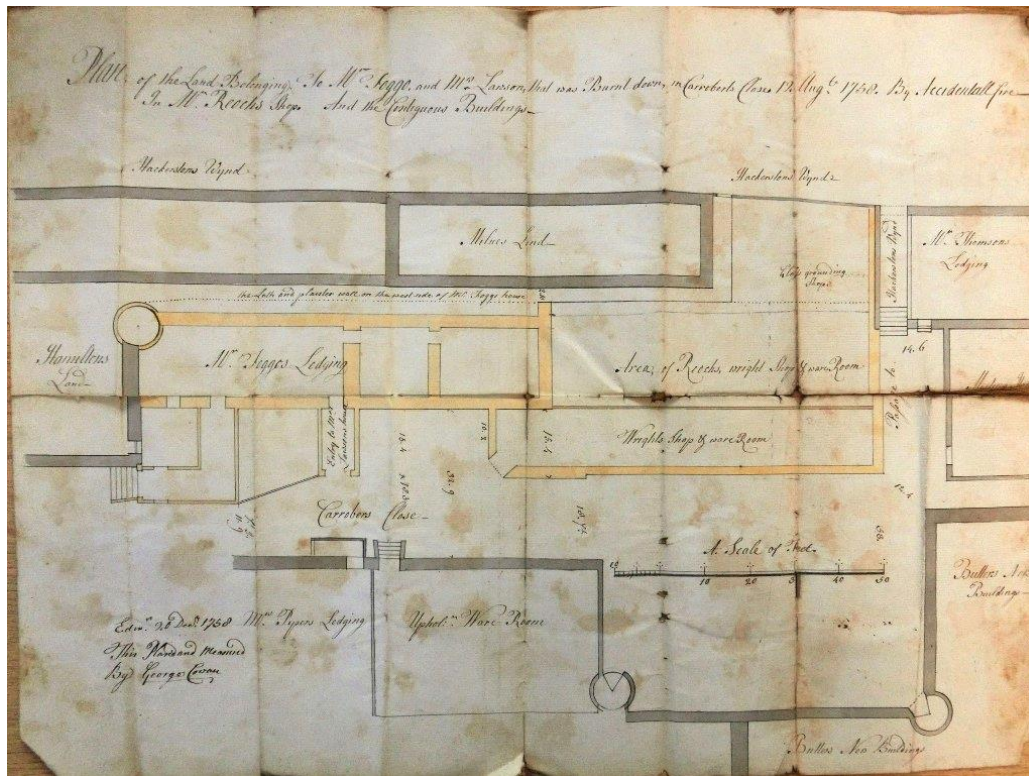 Plan of the Land Belonging To Mr Fogge, and Mrs Lawson, that was Burnt down, in Carrobers Close 12 Augt. 1758. By Accidentall fire
In Mr Reochs Shop. And the Contiguous Buildings
Hackerstons Wynd
Hackerstons Wynd
Milnes Land
Hackerstons Wynd
Mr Thomsons
Lodging
Shop
the Lath and plaister wall on the west side of Mr Foggs house
Hamiltons
Land
Mr Fogges Lodging
Area, of Reochs, wright Shop & ware Room
14.6
Passage to
Entry to Mrs
Lawsons house
Wrights Shop & ware Room
Carrobers Close
12.4
A Scale of Feet
10
10
20
30
40
50
Buildings
Edinr. Decr. 1758
This Plan and Measured
By George Cowan
Mrs Pypers Lodging
Uphol:rs Ware Room
Butters New Buildings